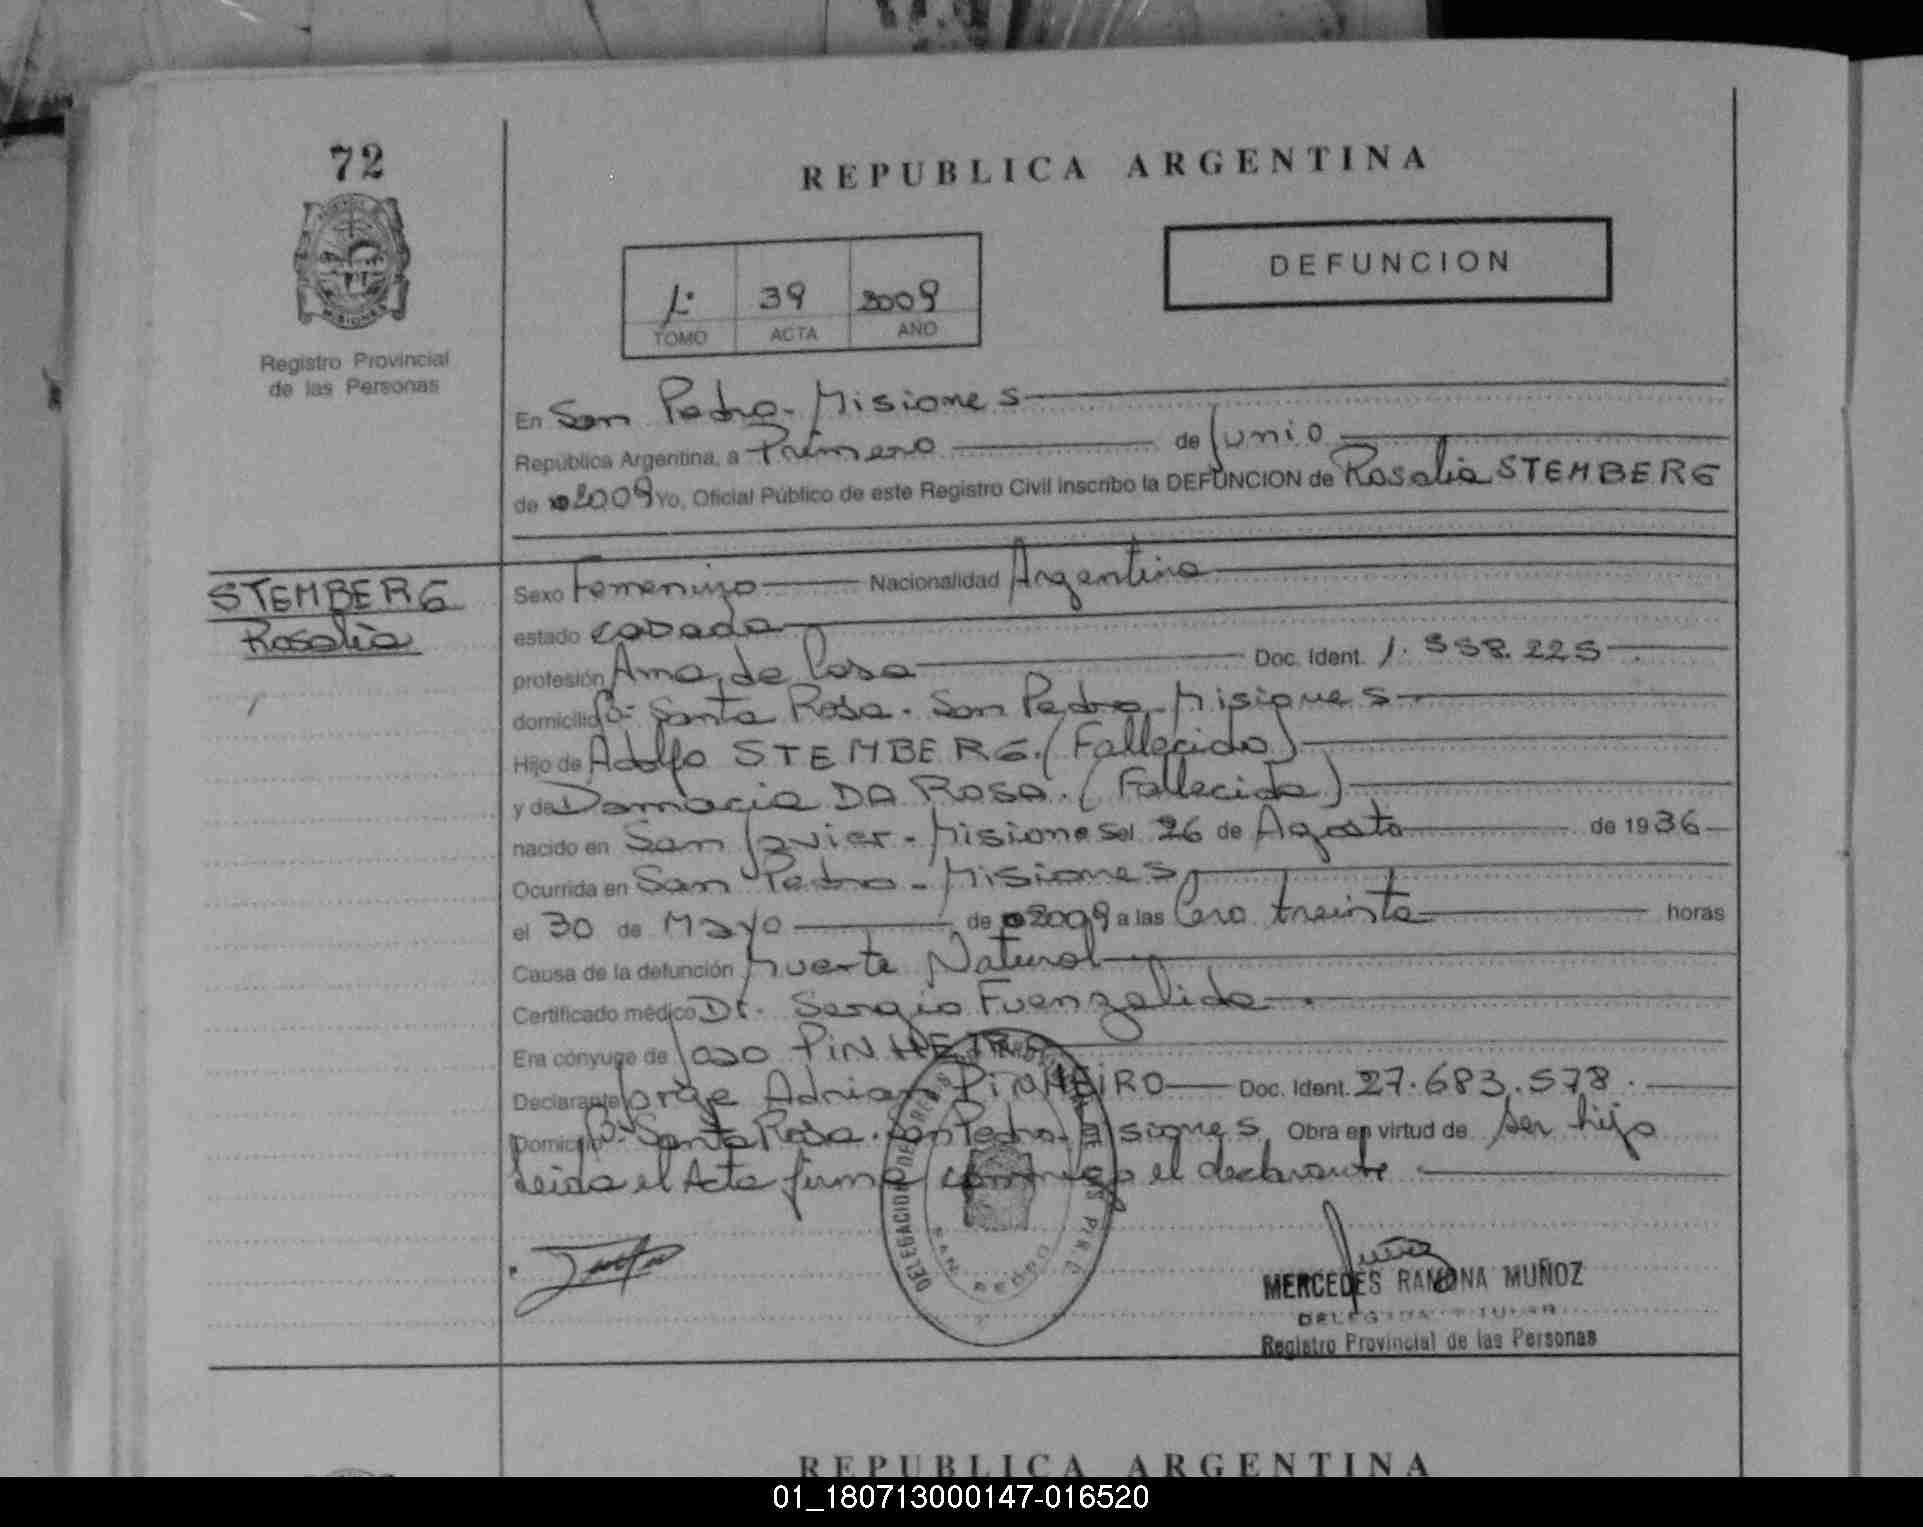 72
REPUBLICA ARGENTINA
DEFUNCION
1: 39 2009
TOMO ACTA AÑO
MISIONES
Registro Provincial
de las Personas
En San Pedro - Misiones
República Argentina, a Primero de Junio
de 2009 Yo, Oficial Público de este Registro Civil inscribo la DEFUNCION de Rosalia STEMBERG
STEMBERG
Rosalia
Sexo Femenino Nacionalidad Argentina
estado casada
profesión Ama de Casa Doc. Ident. 1.558.225
domicilio Bº Santa Rosa. San Pedro - Misiones
Hijo de Adolfo STEMBERG. (Fallecido)
y de Damacia DA ROSA. (Fallecida)
nacido en San Javier - Misiones el 26 de Agosto de 1936
Ocurrida en San Pedro - Misiones
el 30 de Mayo de 2009 a las Cero treinta horas
Causa de la defunción Muerte Natural
Certificado médico Dr. Sergio Fuenzalida
Era cónyuge de Joao PINHEIRO
Declarante Jorge Adrian PINHEIRO Doc. Ident. 27.683.578.
Domicilio Bº Santa Rosa. San Pedro - Misiones Obra en virtud de ser hijo
Leida el Acta firma conmigo el declarante.
DELEGACION DE
SAN PEDRO
MERCEDES RAMONA MUÑOZ
Registro Provincial de las Personas
REPUBLICA ARGENTINA
01_180713000147-016520